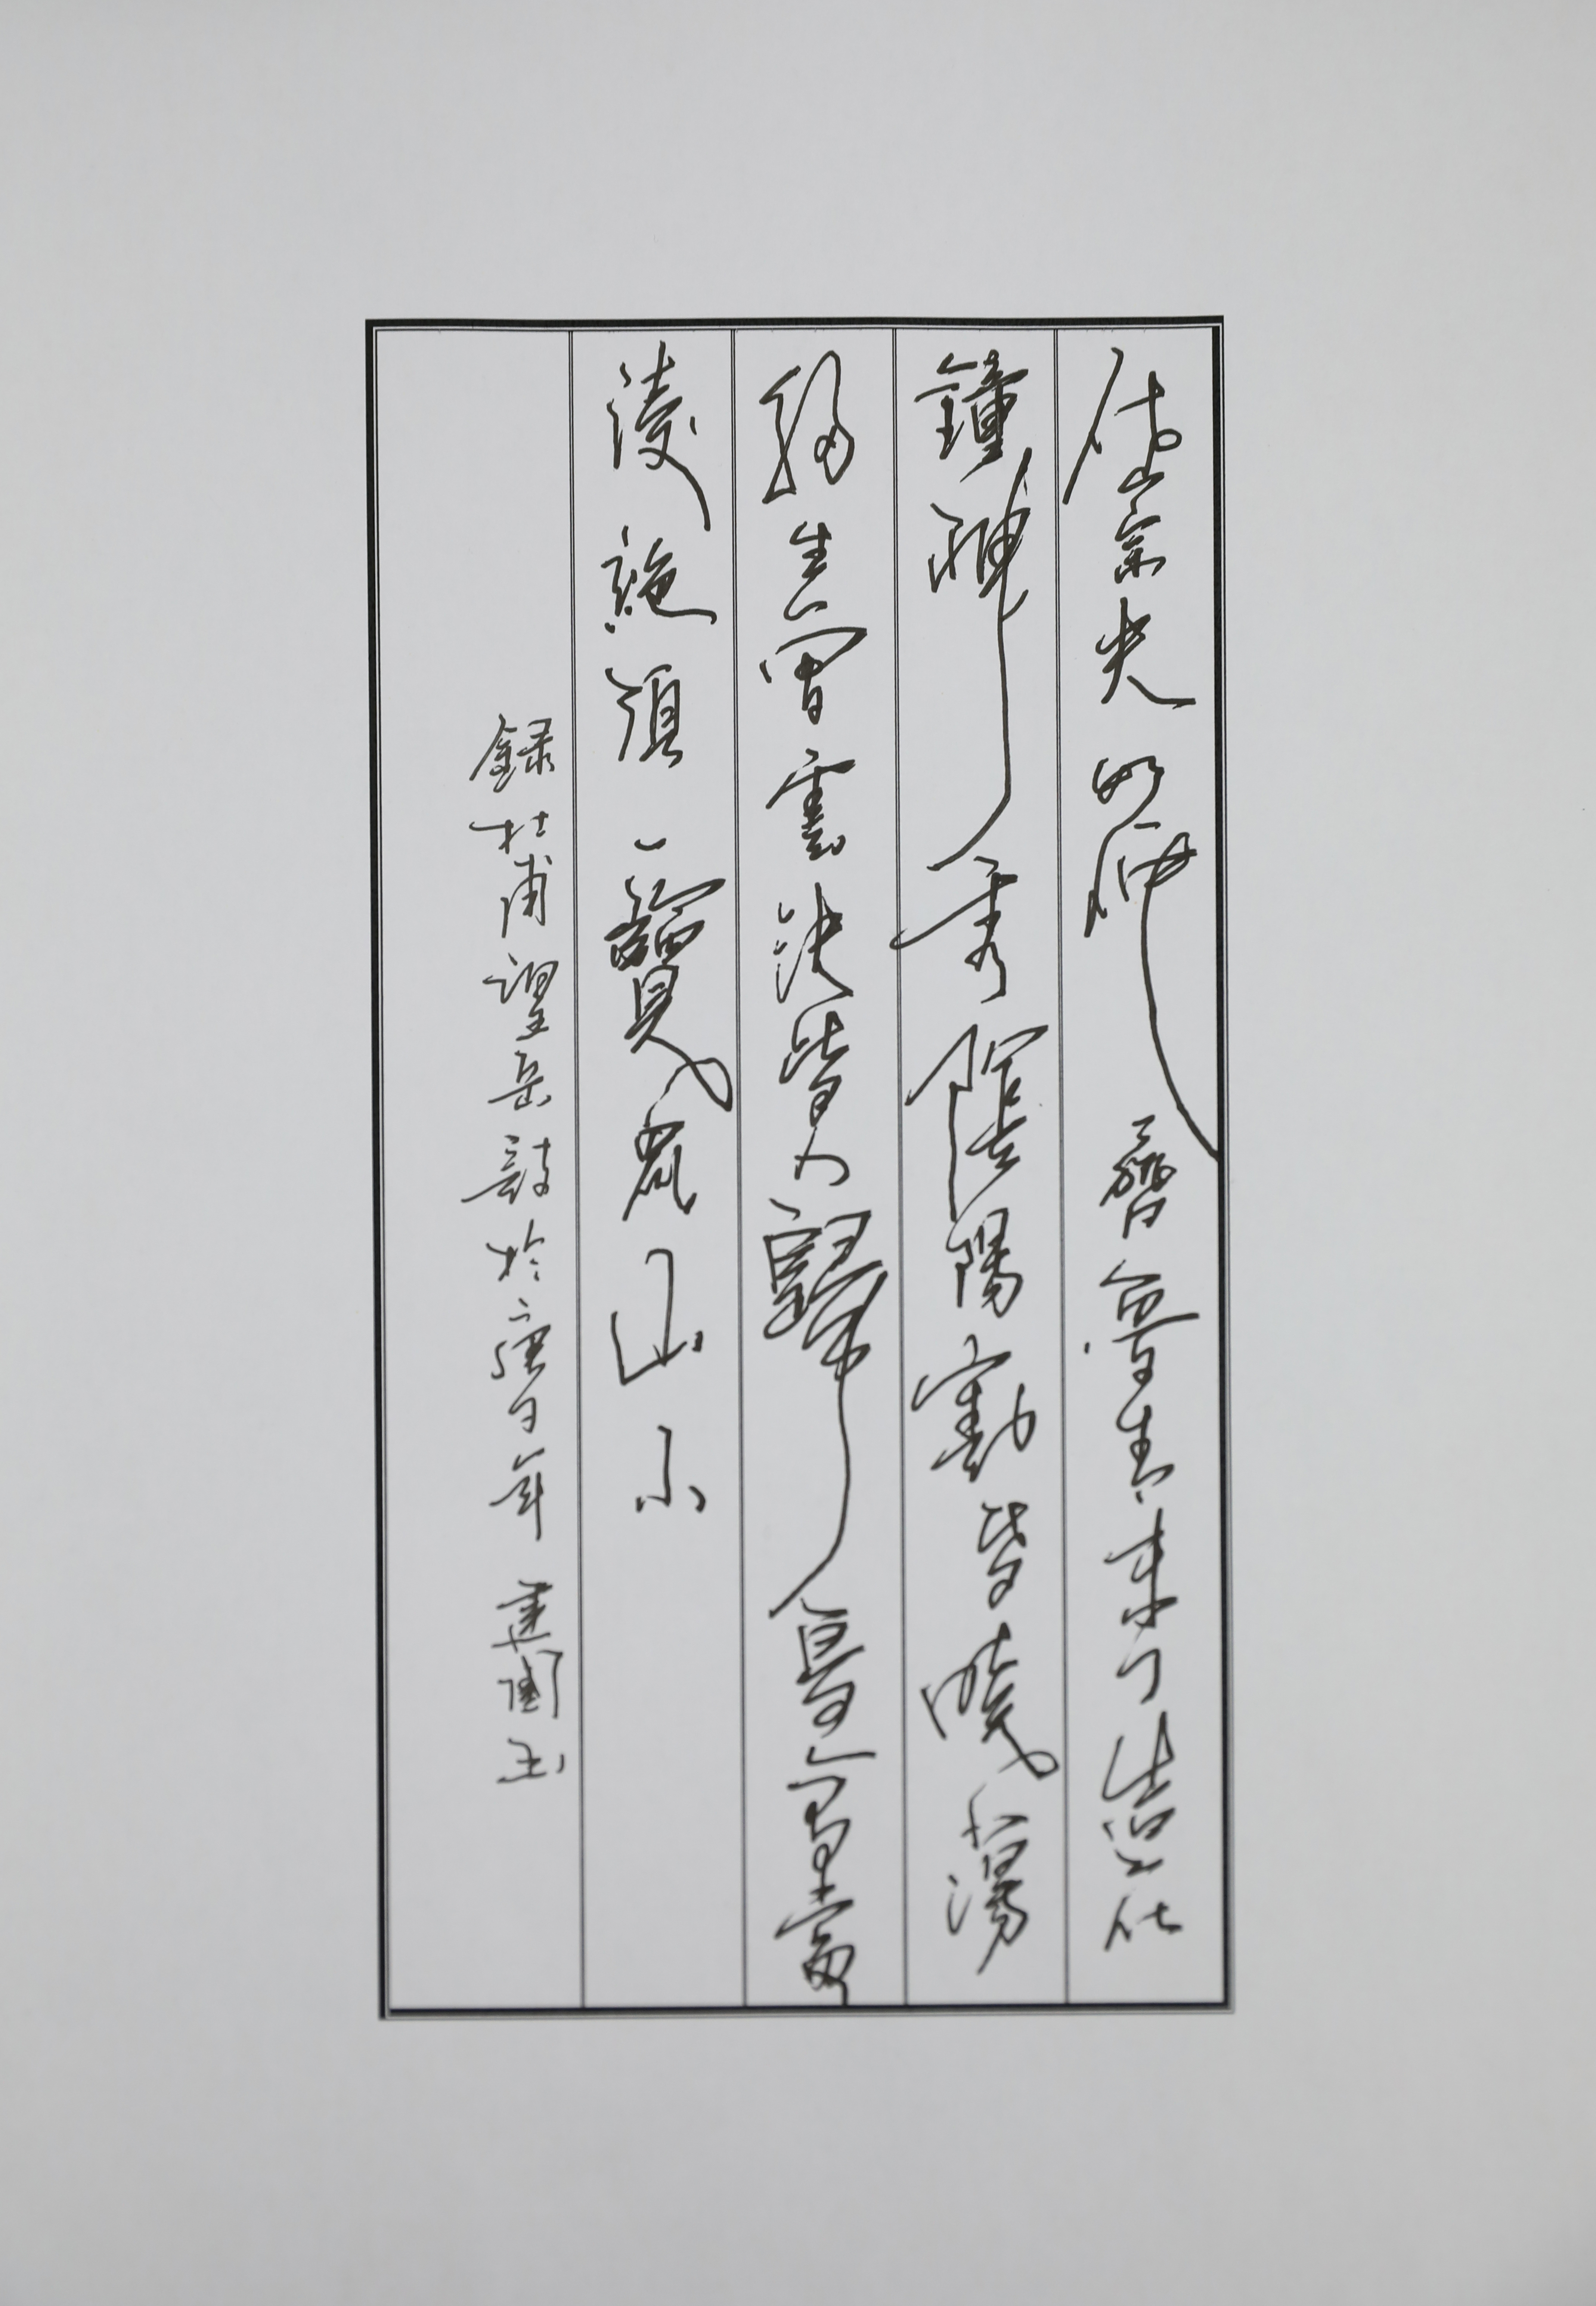 岱宗夫如何齊魯青未了造化
鐘神秀陰陽割昏曉蕩
胸生曾雲決眥入歸鳥會當
淩絶頂一覽衆山小
録杜甫望岳詩於庚子年